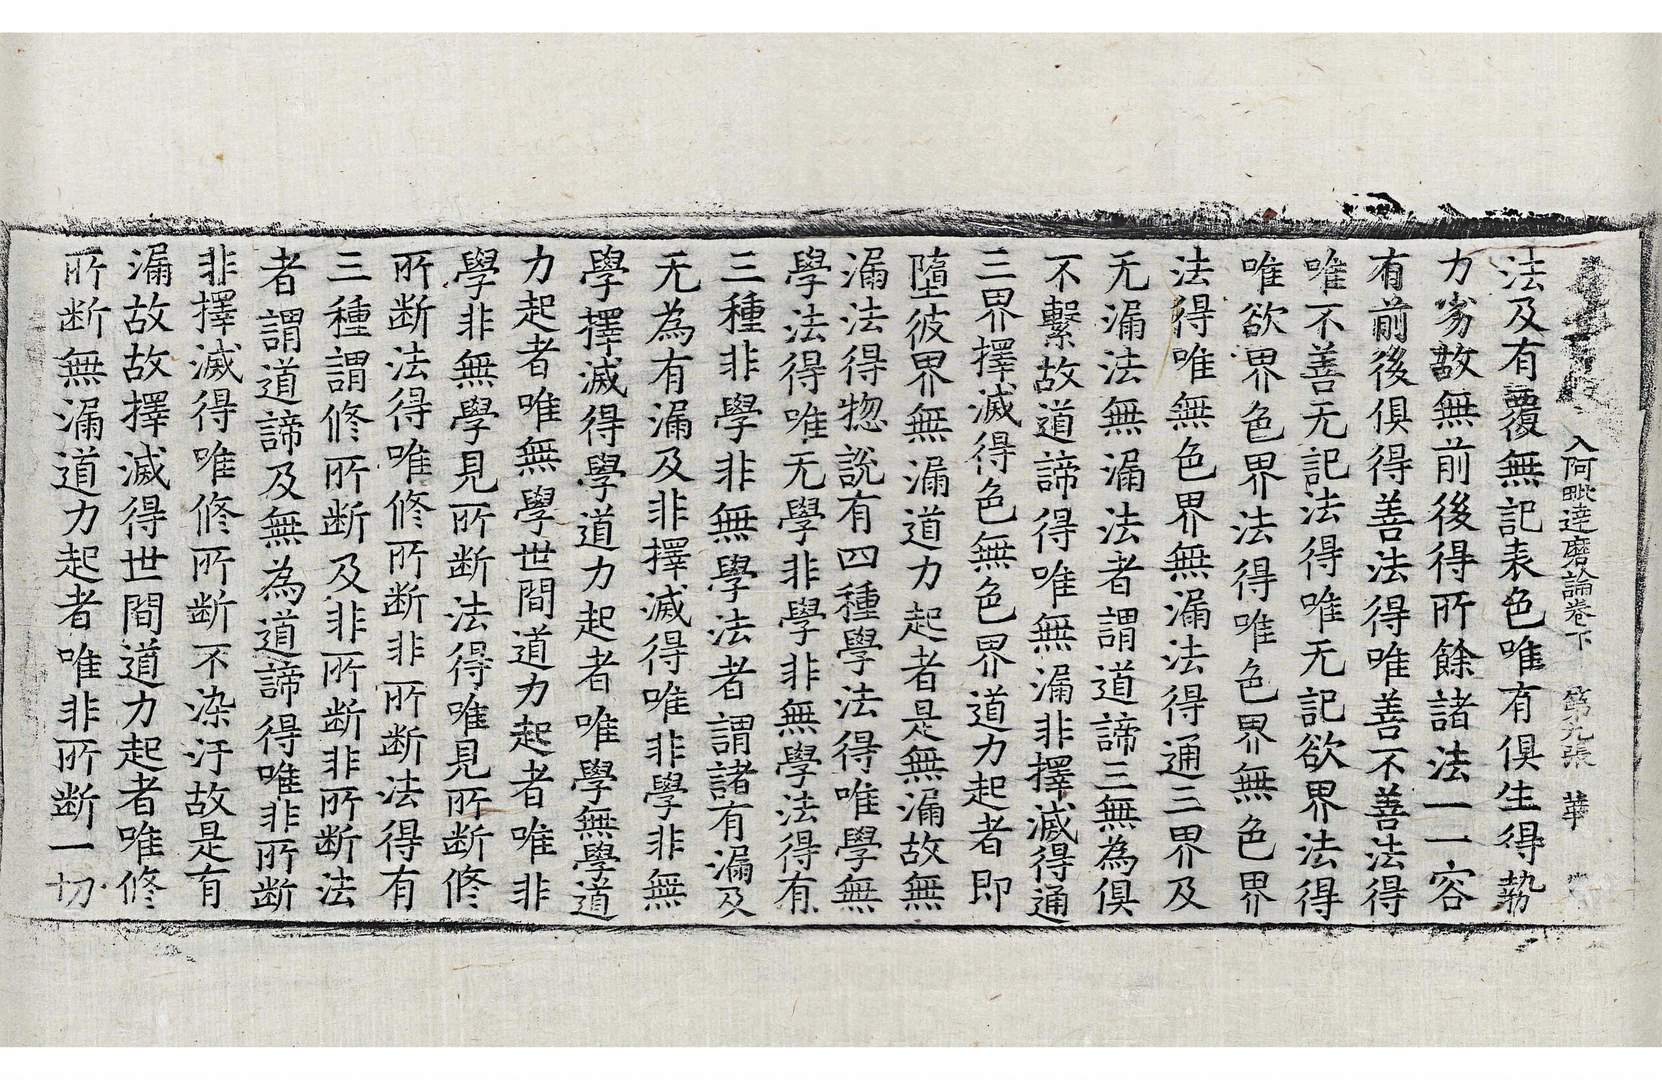 入阿毗達磨論卷下 第九張 華
法及有覆無記表色唯有俱生得勢
力劣故無前後得所餘諸法一一容
有前後俱得善法得唯善不善法得
唯不善无記法得唯无記欲界法得
唯欲界色界法得唯色界無色界
法得唯無色界無漏法得通三界及
无漏法無漏法者謂道諦三無為俱
不繫故道諦得唯無漏非擇滅得通
三界擇滅得色無色界道力起者即
墮彼界無漏道力起者是無漏故無
漏法得惣說有四種學法得唯學無
學法得唯无學非學非無學法得有
三種非學非無學法者謂諸有漏及
无為有漏及非擇滅得唯非學非無
學擇滅得學道力起者唯學無學道
力起者唯無學世間道力起者唯非
學非無學見所斷法得唯見所斷修
所斷法得唯修所斷非所斷法得有
三種謂修所斷及非所斷非所斷法
者謂道諦及無為道諦得唯非所斷
非擇滅得唯修所斷不染汙故是有
漏故故擇滅得世間道力起者唯修
所斷無漏道力起者唯非所斷一切